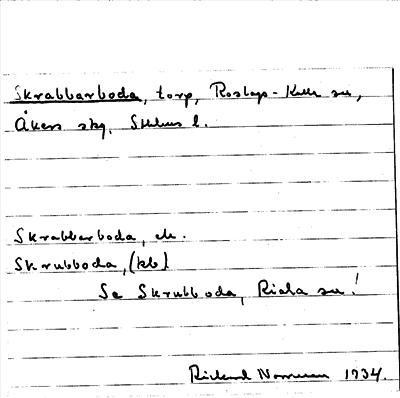 Skrabbarboda, torp, Roslags-Kulla sn,
Åkers skg, Sthlms l.
Skrabbarboda, ek.
Skrubboda, (kb)
Se Skrubboda, Riala sn!
Rickard 1934.